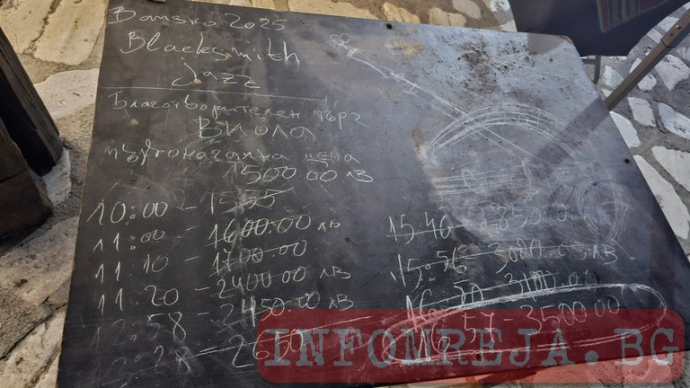 Bansko 2025
Blacksmith
Jazz
Благотворителен търг
Виола
първоначална цена
1500 00 лв
10:00 - 1555
11:00 - 1600.00
11:10 - 1700.00
11:20 - 2400.00 лв
12:58 - 2450.00 лв
2:28 - 2650
15:40 - 2850.0
15:56 - 3000.00 лв
16:50 - 3100.00
16:57 - 3500.00
INFOMREJA.BG